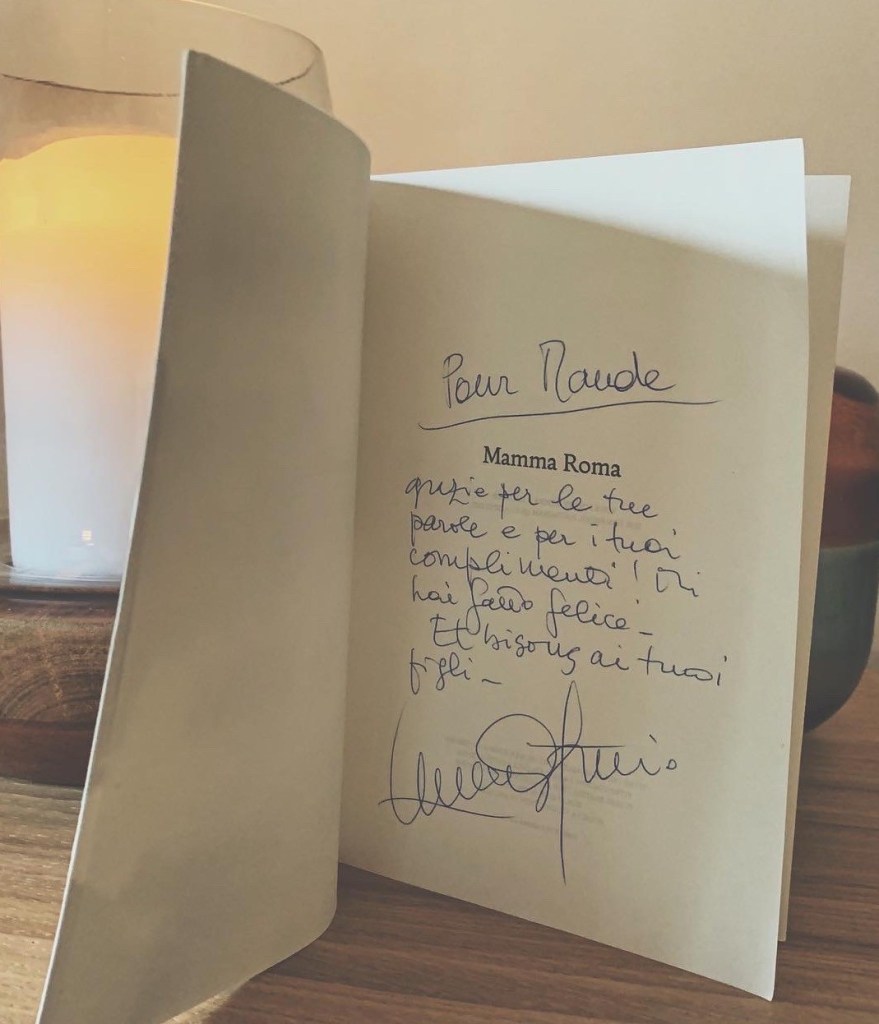 Pour Maude
Mamma Roma
grazie per le tue
parole e per i tuoi
complimenti! Mi
hai fatto felice_
Et bisous ai tuoi
figli_